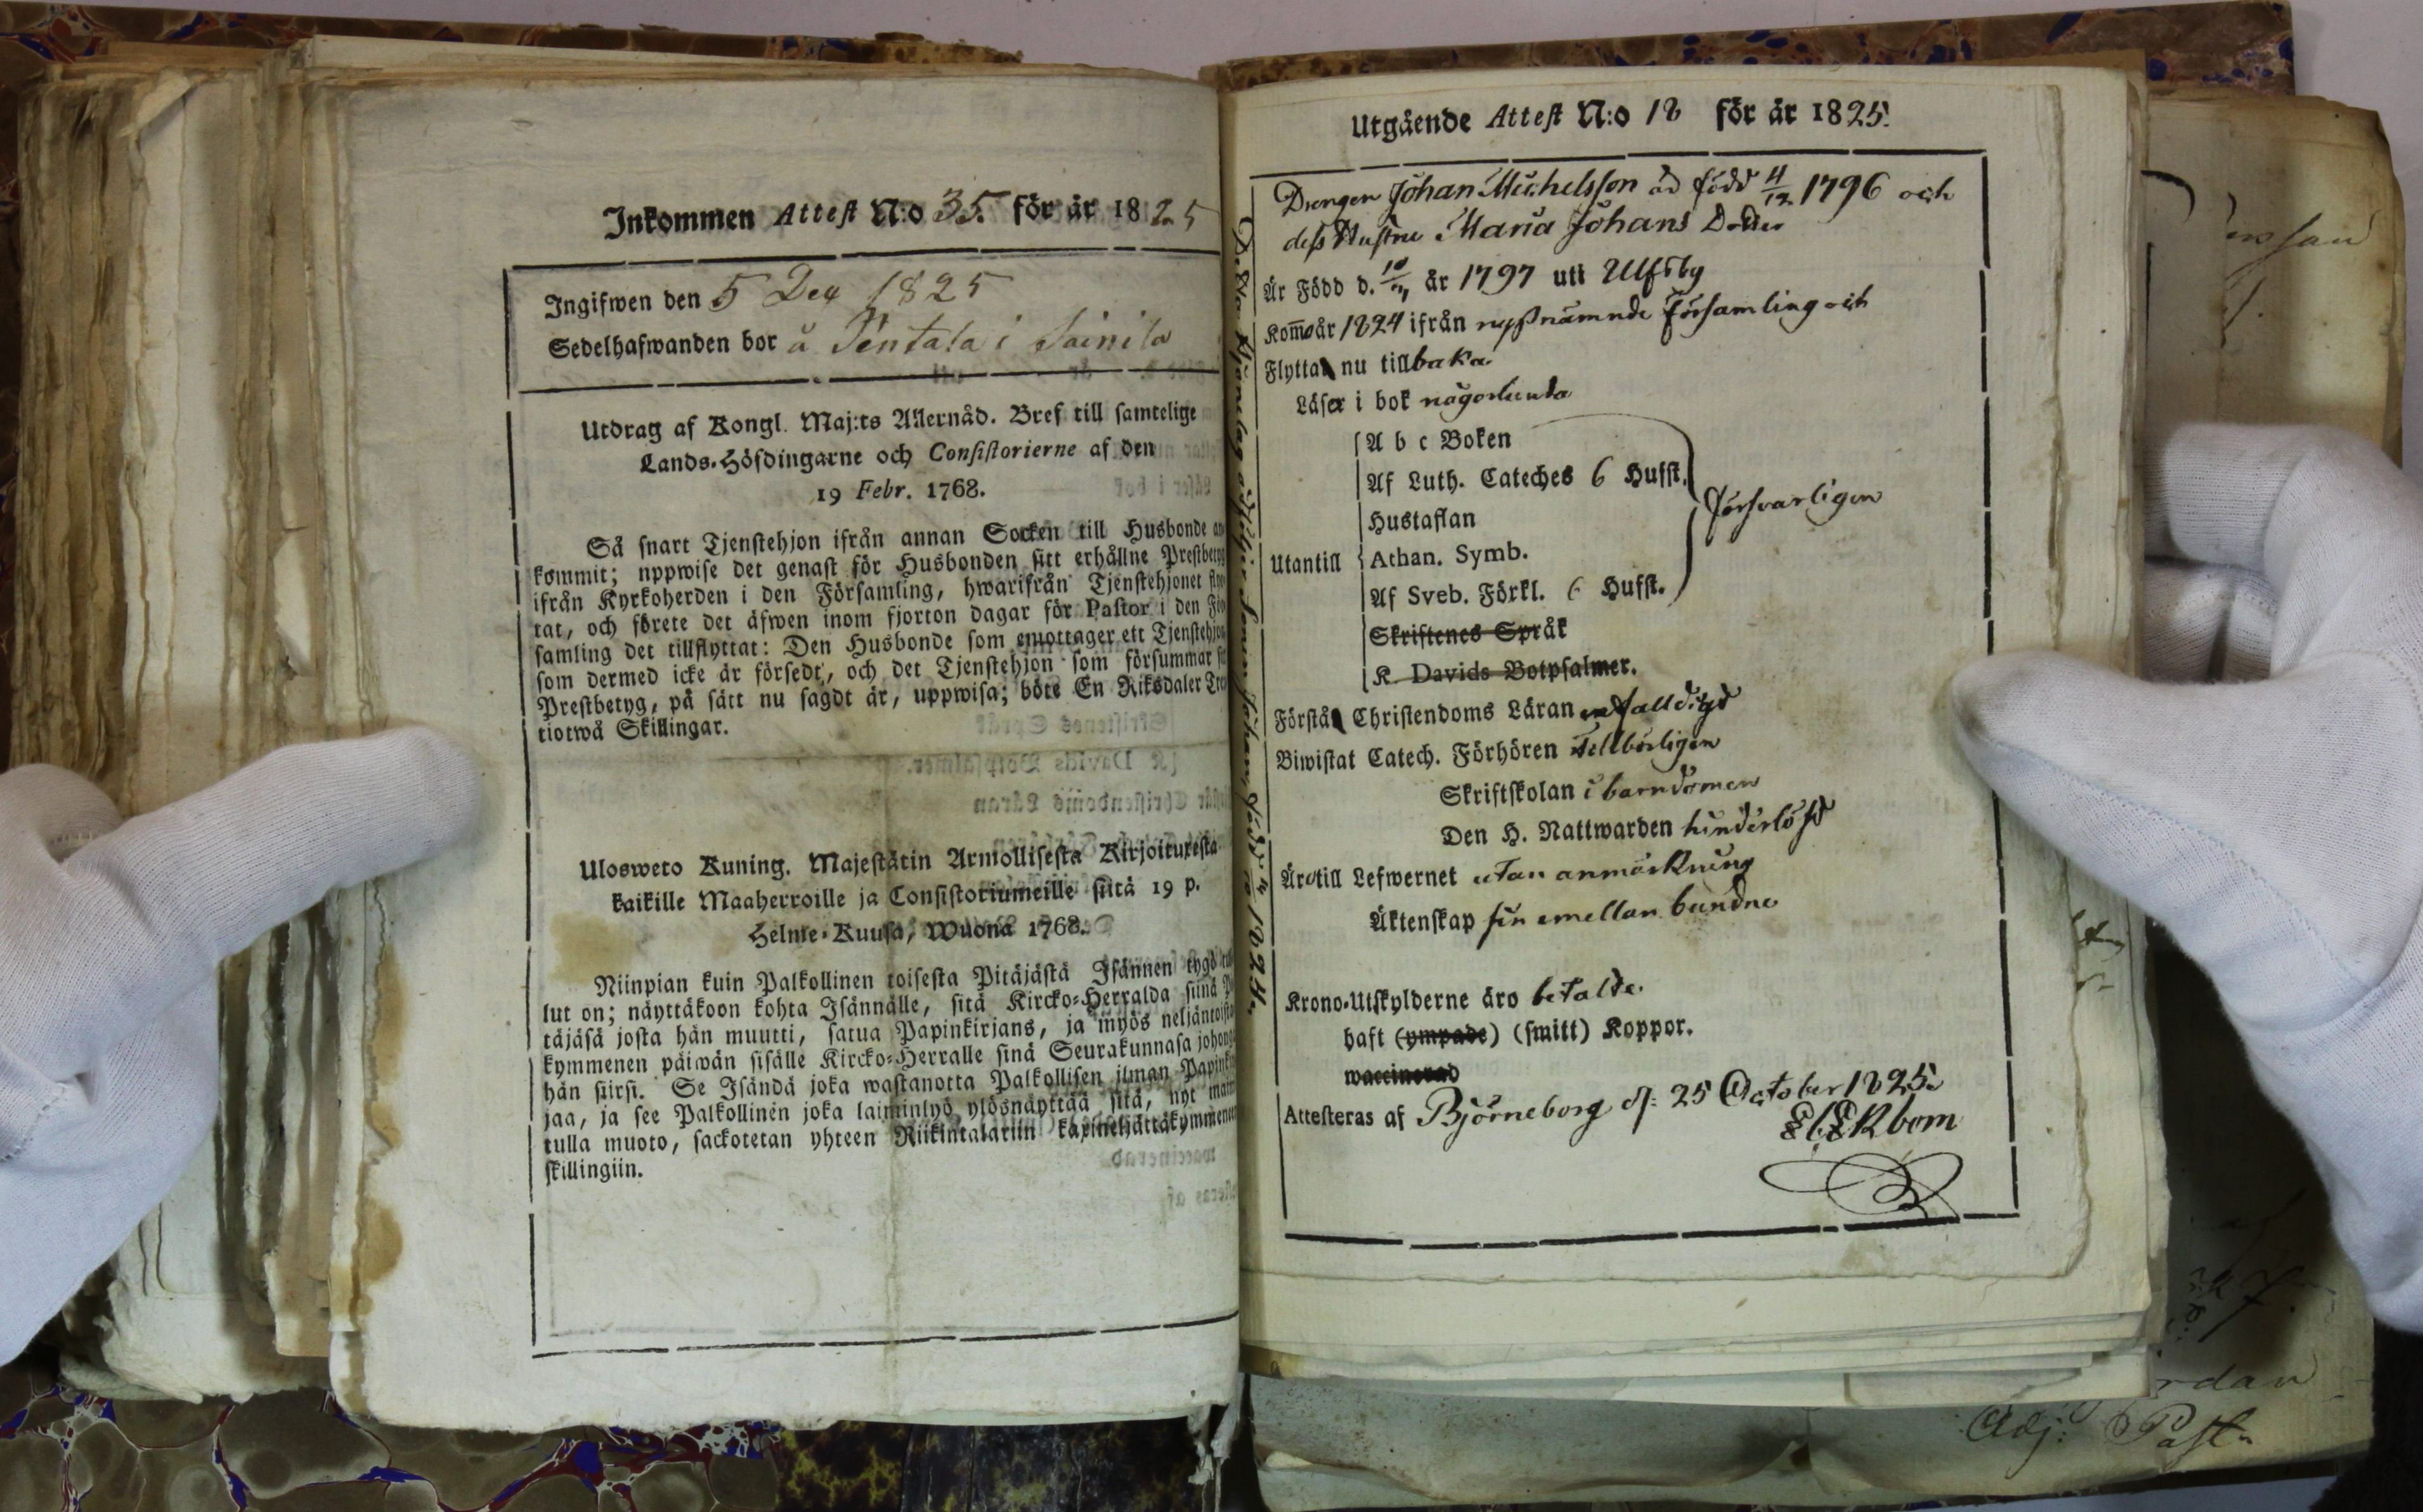 Inkommen Attest N:o 35. för år 1825
Ingifwen den 5 Dec 1825
Sedelhafwanden bor å Pentala i Sainila
Utdrag af Kongl. Maj:ts Allernåd. Bref till samtelige
Lands-Höfdingarne och Consistorierne af den
19 Febr. 1768.
Så snart Tjenstehjon ifrån annan Socken till Husbonde
kommit; uppwise det genast för Husbonden sitt erhållne
ifrån Kyrkoherden i den Församling, hwarifrån Tjenstehjonet
tat, och förete det äfwen inom fjorton dagar för Pastor i den
samling det tillflyttat: Den Husbonde som emottager ett
som dermed icke är försedt, och det Tjenstehjon som försummar
Prestbetyg, på sätt nu sagdt är, uppwisa; böte En Riksdaler
tiotwå Skillingar.
Ulosweto Kuning. Majestätin Armollisesta Kirjoituxesta
kaikille Maaherroille ja Consistoriumeille siitä 19 p.
Helme-Kuusa, Wuona 1768.
Niinpian kuin Palkollinen toisesta Pitäjästä Isännen tygö
lut on; näyttäkoon kohta Isännälle, sitä Kircko-Herralda siinä
täjäsä josta hän muutti, satua Papinkirjans, ja myös
kymmenen päiwän sisälle Kircko-Herralle sinä Seurakunnasa
hän siirsi. Se Isändä joka wastanotta Palkollisen ilman
jaa, ja see Palkollinen joka laiminlyö ylösnäyttää sitä, nyt
tulla muoto, sackotetan yhteen Riikintalariin
skillingiin.
Utgående Attest N:o 18 för år 1825.
Drengen Johan Michelsson är född 4/12 1796 och
dess Hustru Maria Johans Dotter
Är Född d. år 1797 uti Ulfsby
Kommo år 1824 ifrån nyssnämnde församling och
Flytta nu tillbaka.
Läsa i bok någorlunda
A b c Boken
Af Luth. Cateches 6 Hufst.
Hustaflan
försvarligen
Utantill
Athan. Symb.
Af Sveb. Förkl. 6 Hufst.
Skriftenes Språk
K. Davids Botpsalmer.
Förstå Christendoms Läran enfalldigt
Biwistat Catech. Förhören tillbörligen
Skriftskolan i barndomen
Den H. Nattwarden hinderlöst
Äro till Lefwernet utan anmärkning
Äktenskap sin emellan bundne
Krono-Utskylderne äro betalde.
haft (ympade) (smitt) Koppor.
waccinerad
Attesteras af Björneborg d: 25 October 1825.
Ekbom
Adj: Past.